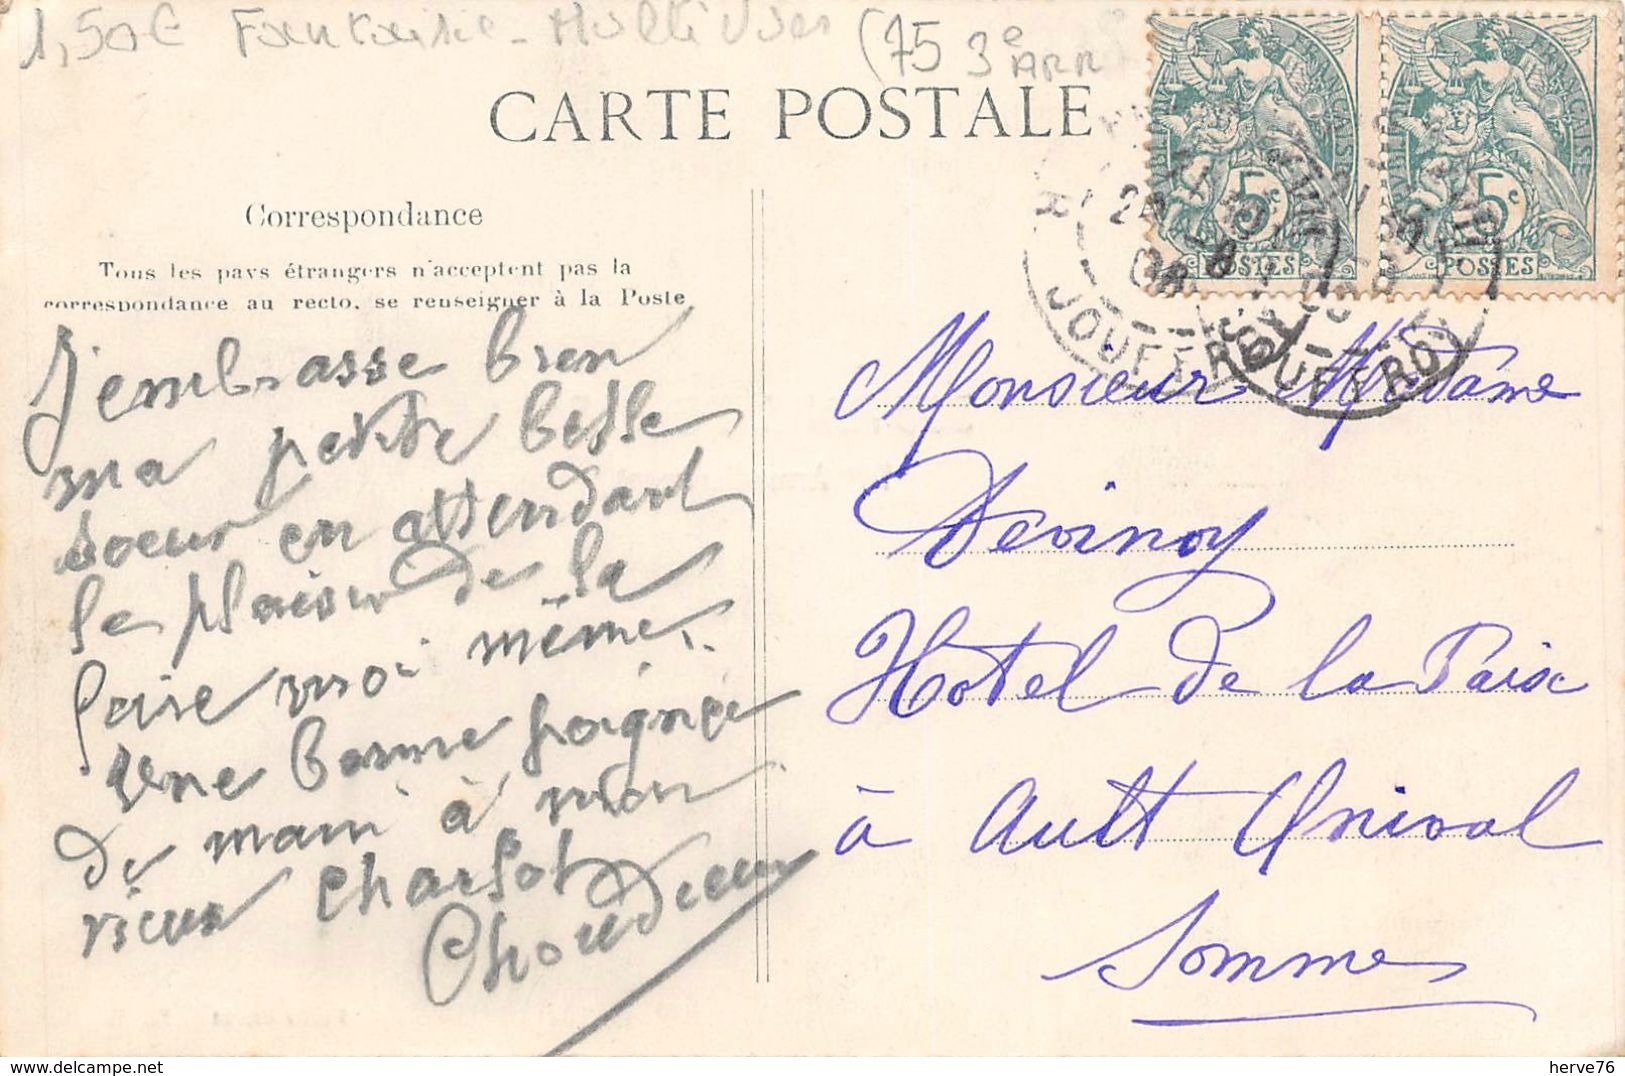 1,50€ Fantaisie - Multi Vues (75 3e ARR
CARTE POSTALE
Correspondance
Tous les pays étrangers n'acceptent pas la
correspondance au recto, se renseigner à la Poste
J'embrasse bien
ma petite belle
soeur en attendant
le plaisir de la
faire moi même.
Une bonne poignée
de main à mon
vieux Charlot
Choudieu
RÉPUBLIQUE FRANÇAISE
5c
POSTES
RÉPUBLIQUE FRANÇAISE
5c
POSTES
JOUFFROY
JOUFFROY
Monsieur Madame
Devinoy
Hotel de la Paix
à Ault Onival
Somme
herve76